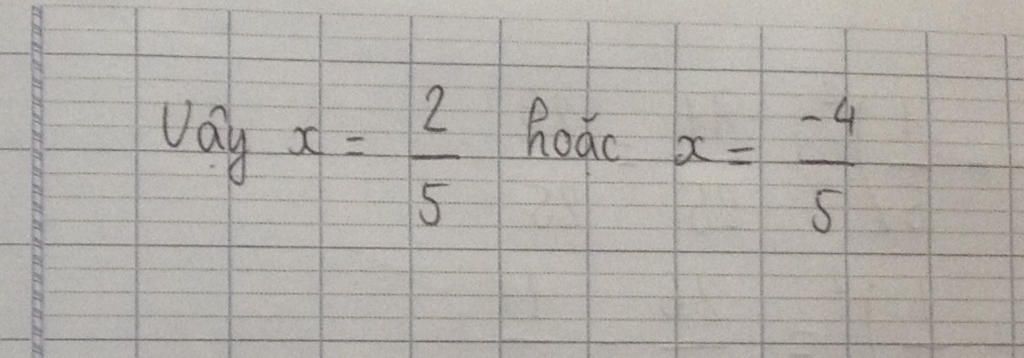 Vậy x = 2/5 hoặc x = -4/5